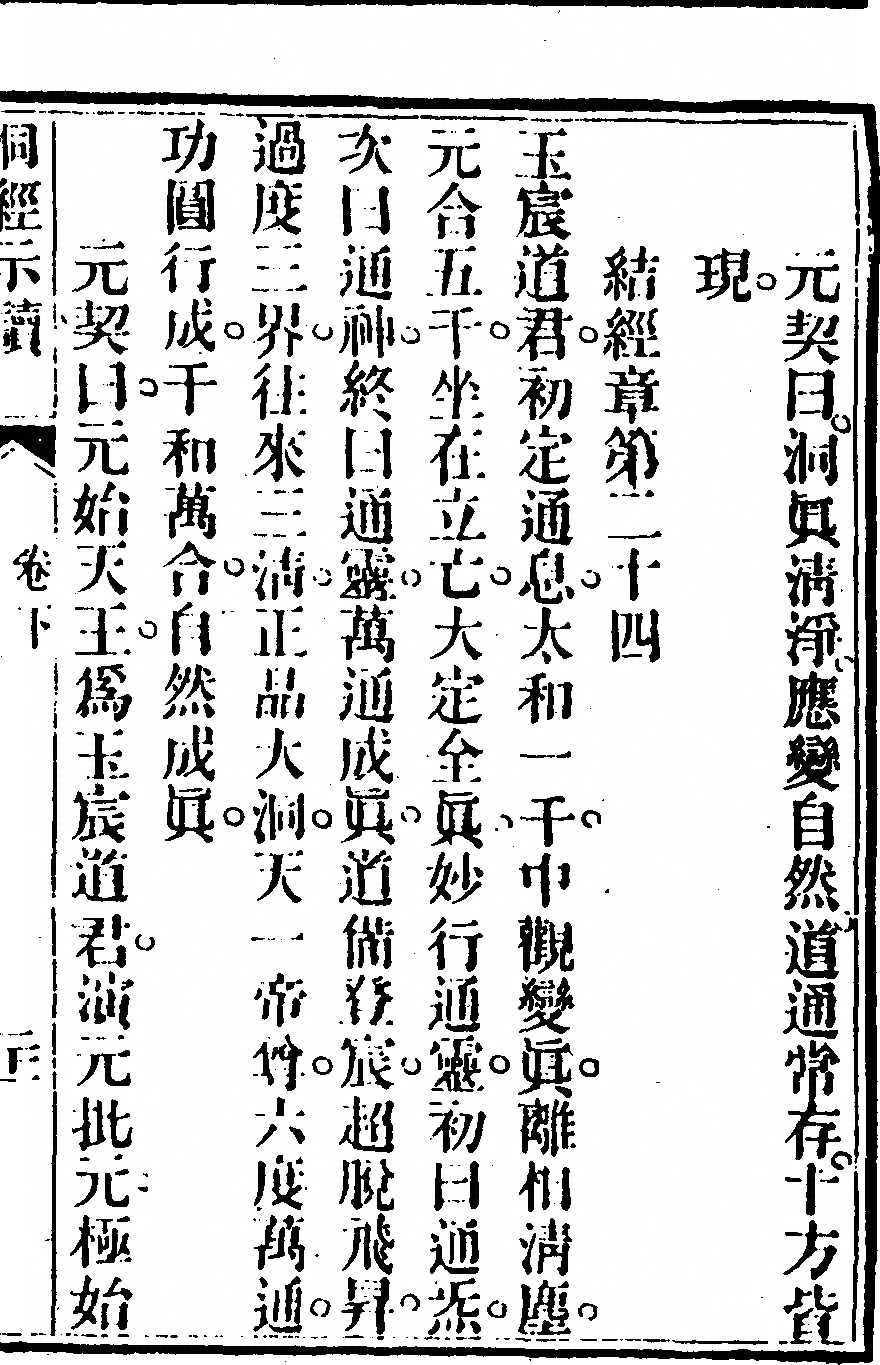 元契曰洞眞淸淨應變自然道通常存十方皆
現
結經章第二十四
玉宸道君初定通息太和一千中觀變眞離相淸塵
元合五千坐在立亡大定全眞妙行通靈初曰通炁
次曰通神終曰通靈萬通成眞道備登宸超脫飛昇
過度三界往來三淸正品大洞天一帝尊六度萬通
功圓行成千和萬合自然成眞
元契曰元始天王爲玉宸道君演元批元極始
洞經示讀
卷下